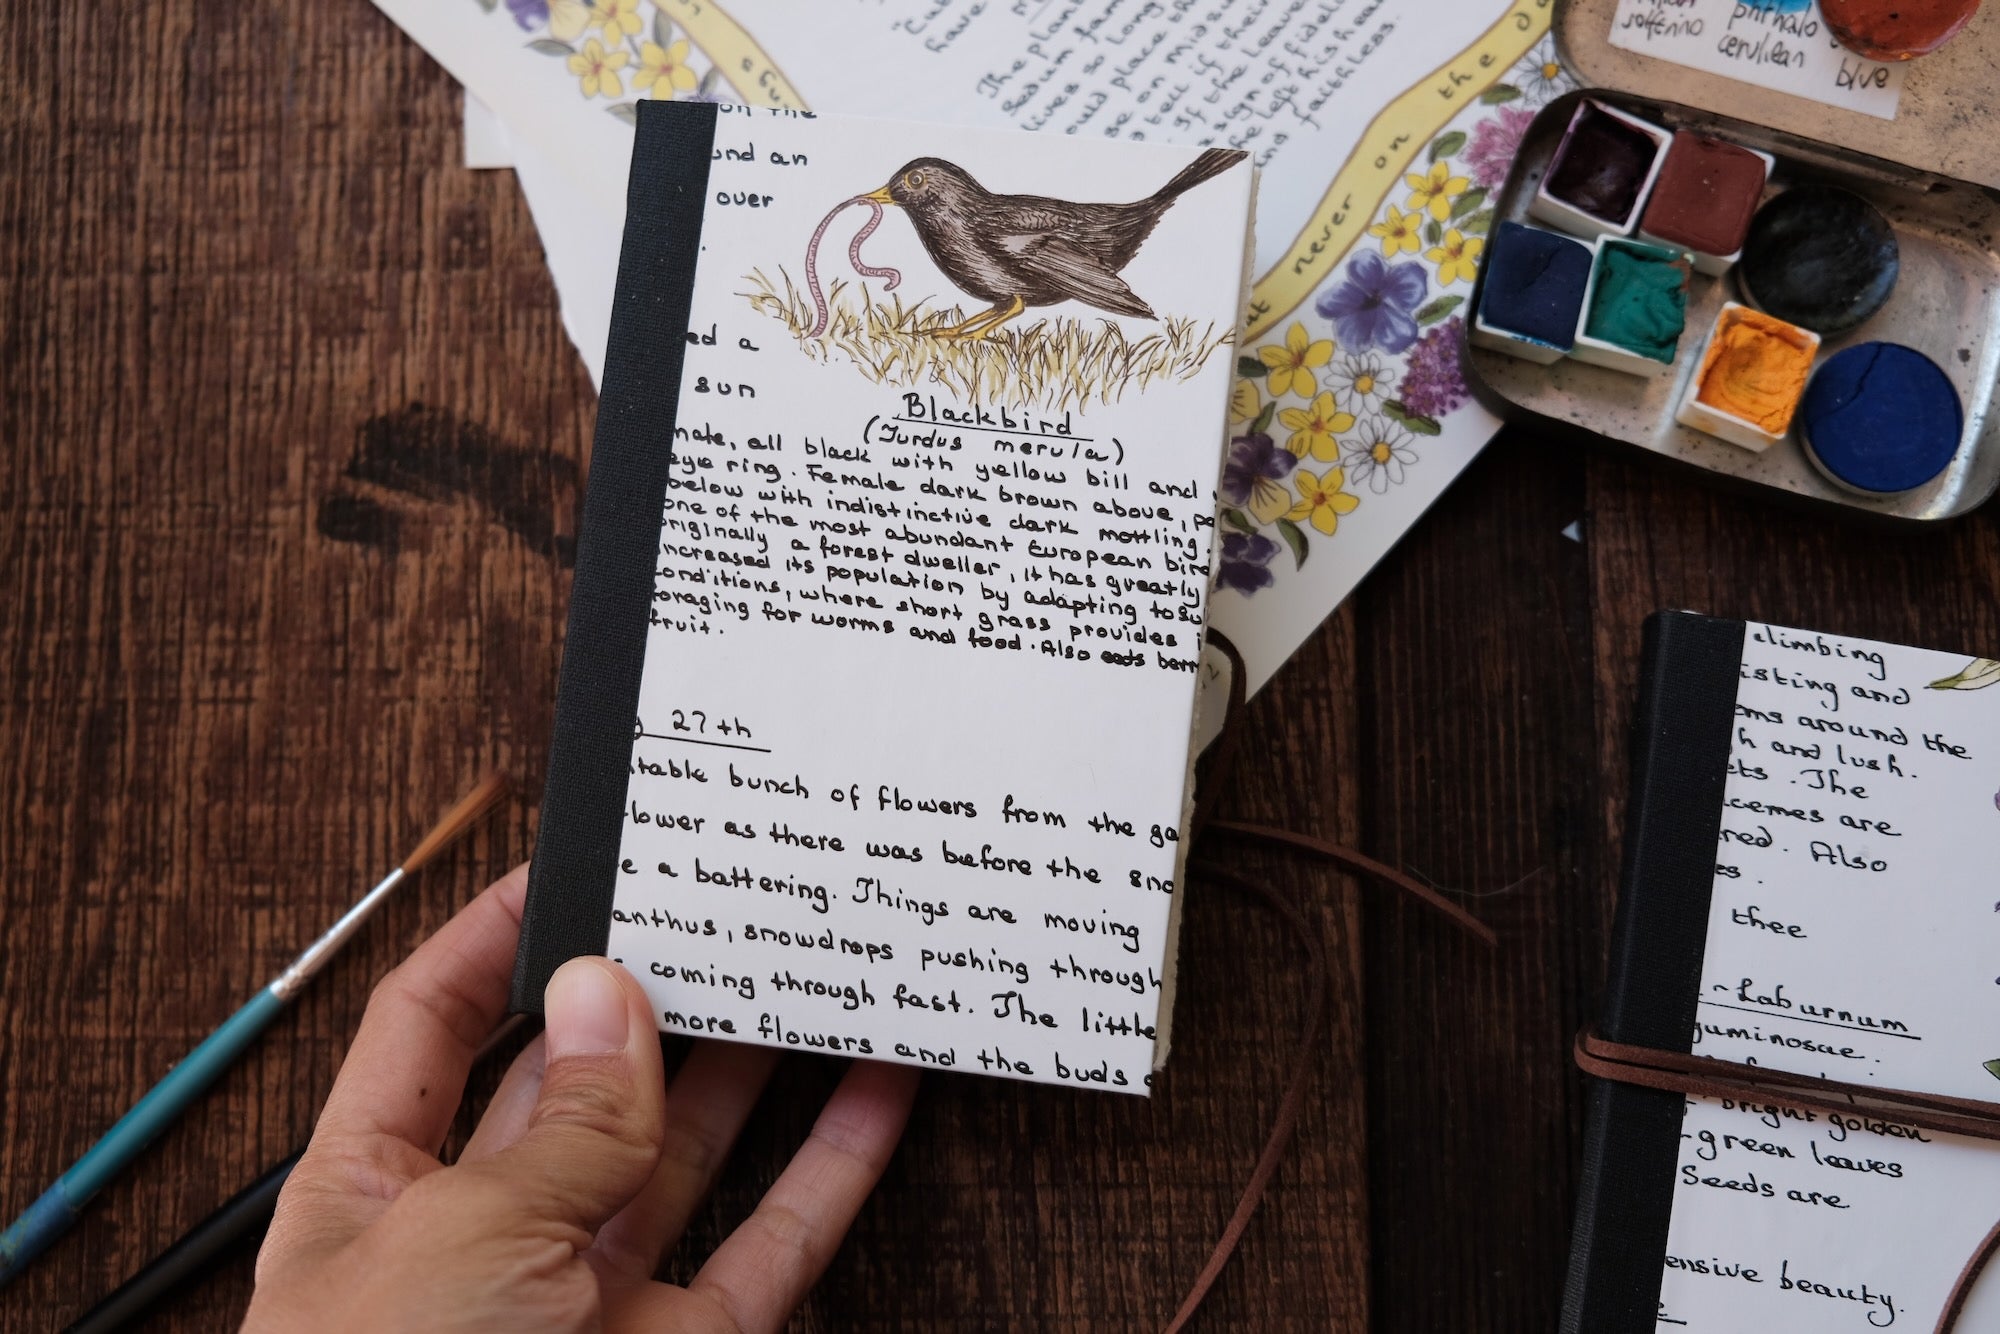 on the
and an
over
.
ed a
sun
Blackbird
(Turdus merula)
male, all black with yellow bill and
eye ring. Female dark brown above, pa
below with indistinctive dark mottling.
one of the most abundant European bird
originally a forest dweller, it has greatly
increased its population by adapting to su
conditions, where short grass provides i
foraging for worms and food. Also eats berr
fruit.
27th
table bunch of flowers from the ga
flower as there was before the sno
e a battering. Things are moving
anthus, snowdrops pushing through
coming through fast. The little
more flowers and the buds
"Cu
have
The plant
Sedum fam
lives so long
ould place th
se on midsu
tell if their
. If the leave
sign of fideli
he left his hear
and faithless.
never on the da
phthalo
solferino cerulean blue
climbing
isting and
ms around the
h and lush.
ets. The
cemes are
red. Also
es.
thee
- Laburnum
guminosae.
bright golden
-green leaves
Seeds are
ensive beauty.